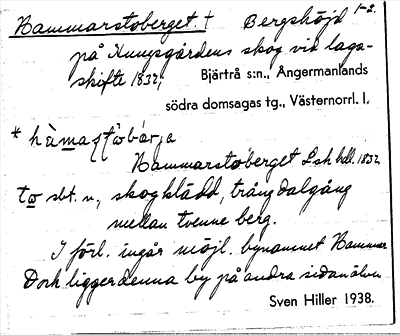 Hammarstoberget. † Bergshöjd 1-2.
på Kungsgårdens skog vid laga-
skifte 1832;
Bjärtrå s:n., Ångermanlands
södra domsagas tg., Västernorrl. l.
Hammarstoberget Lsh hdl. 1832
to sbt. n., skogklädd, trång dalgång
mellan tvenne berg.
I förl. ingår möjl. bynamnet Hammar
Dock ligger denna by på andra sidan älven
Sven Hiller 1938.